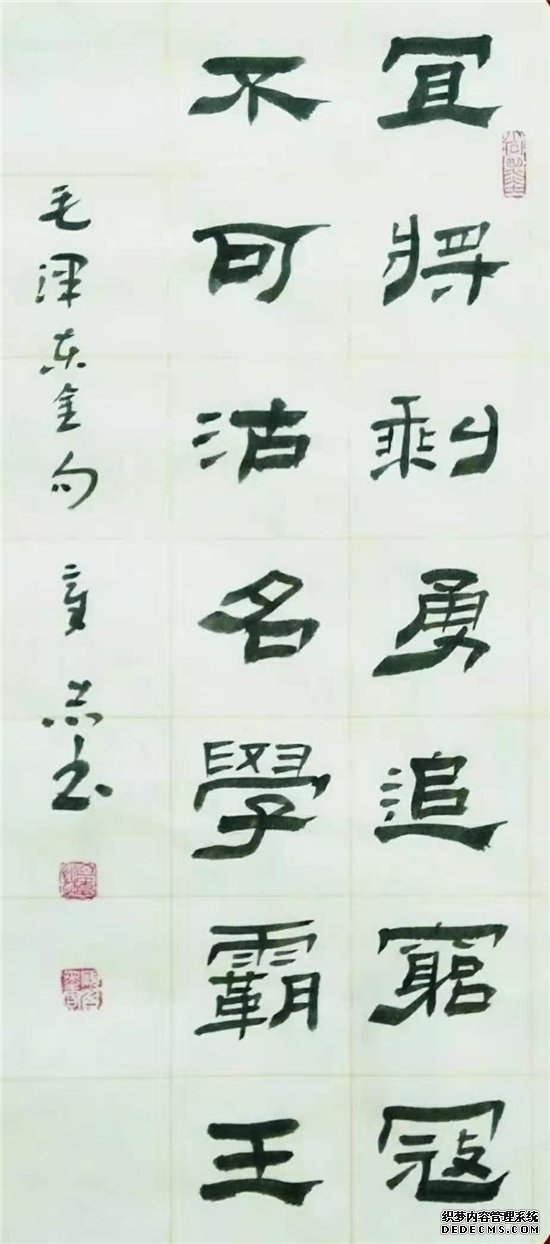 宜将剩勇追窮寇
不可沽名學霸王
毛泽东金句
书
织梦内容管理系统
DEDECMS.COM